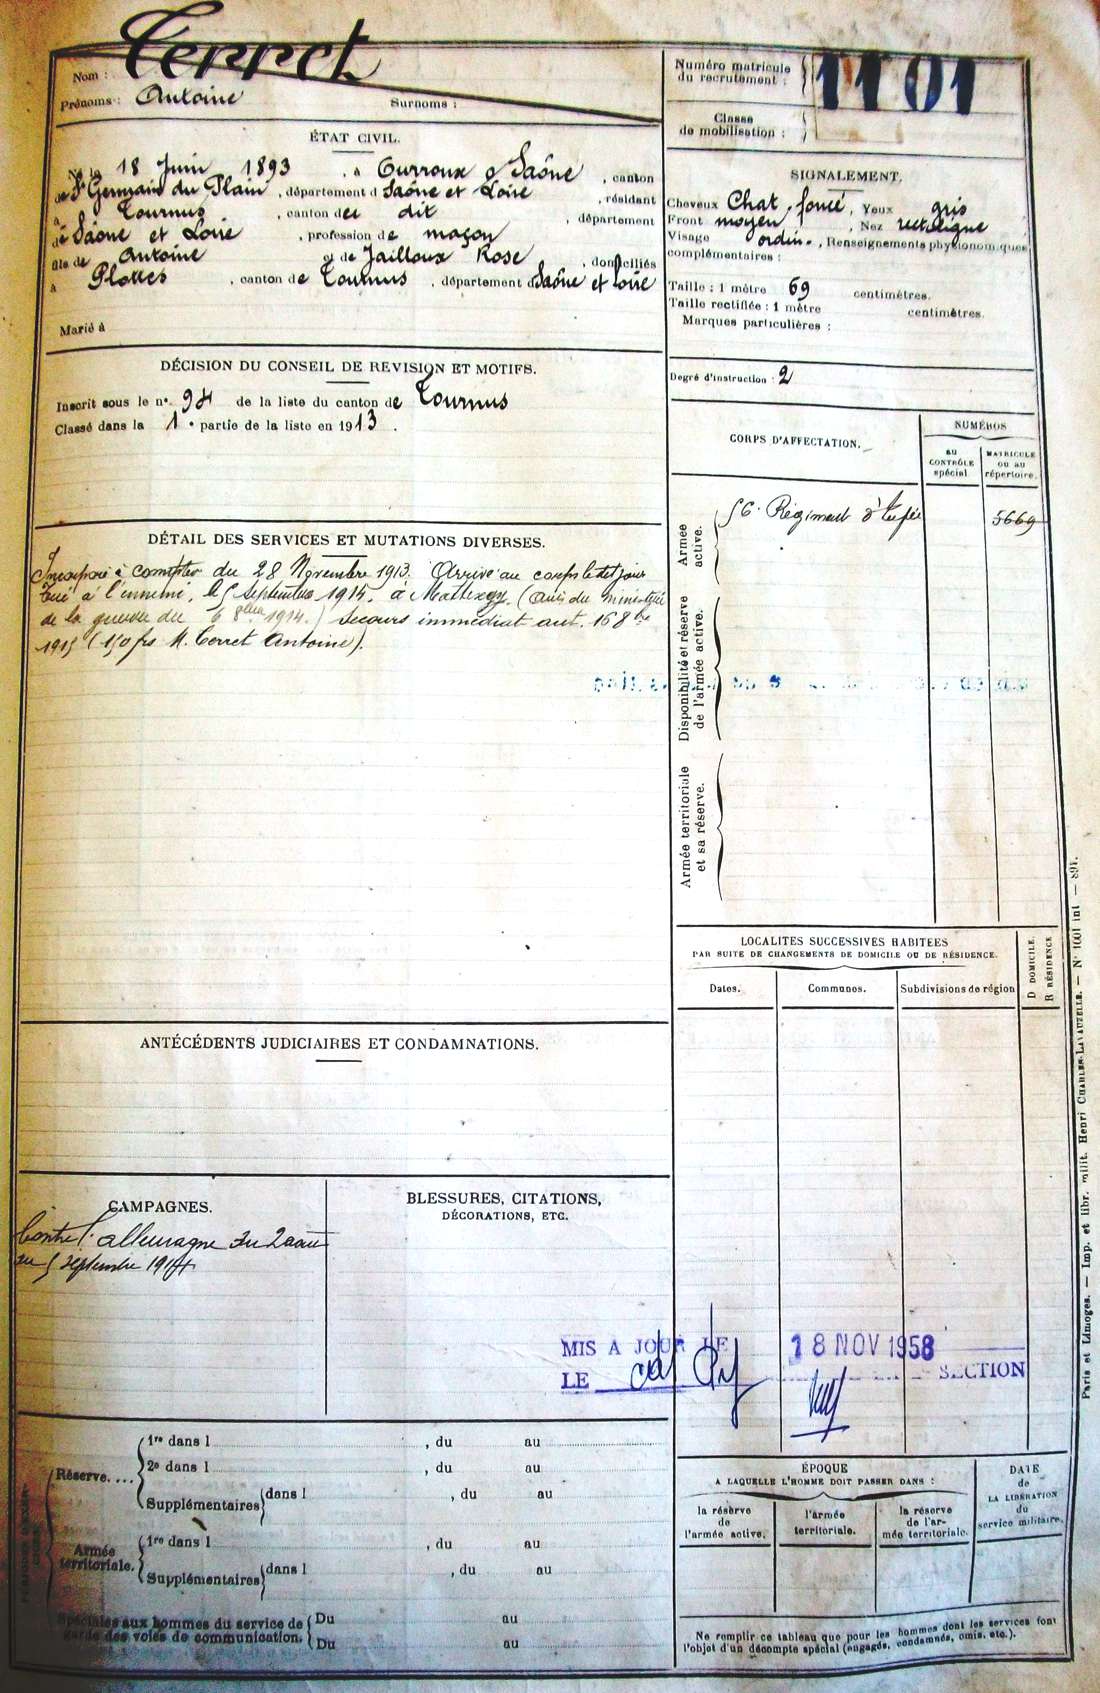 Nom : Terret
Prénoms : Antoine Surnoms :
ÉTAT CIVIL.
Né le 18 Juin 1893, à Ourroux s Saône, canton
de St Germain du Plain, département d Saône et Loire, résidant
à Tournus, canton de u dit, département
de Saône et Loire, profession de maçon
fils de Antoine et de Jailloux Rose, domiciliés
à Plottes, canton de Tournus, département d Saône et Loire
Marié à
DÉCISION DU CONSEIL DE REVISION ET MOTIFS.
Inscrit sous le n°. 94 de la liste du canton de Tournus
Classé dans la 1e partie de la liste en 1913.
DÉTAIL DES SERVICES ET MUTATIONS DIVERSES.
Incorporé à compter du 28 Novembre 1913. Arrivé au corps le dit jour
Tué à l'ennemi, le 5 septembre 1914, à Mattexey. (avis du ministère
de la guerre du 6 8bre 1914.) Secours immédiat aut. 16 8bre
1915 (150 frs M. Terret Antoine).
ANTÉCÉDENTS JUDICIAIRES ET CONDAMNATIONS.
CAMPAGNES.
Contre l'allemagne du 2 aout
au 5 septembre 1914
BLESSURES, CITATIONS,
DÉCORATIONS, ETC.
MIS A JOUR LE 18 NOV 1958
LE SECTION
Réserve....
1re dans l , du au
2e dans l , du au
Supplémentaires dans l , du au
Armée territoriale.
1re dans l , du au
Supplémentaires dans l , du au
Spéciales aux hommes du service de
garde des voies de communication.
Du au
Du au
Numéro matricule
du recrutement : 1101
Classe
de mobilisation :
SIGNALEMENT.
Cheveux Chat. foncé, Yeux gris
Front moyen, Nez rectiligne
Visage ordin., Renseignements physionomiques
complémentaires :
Taille : 1 mètre 69 centimètres.
Taille rectifiée : 1 mètre centimètres.
Marques particulières :
Degré d'instruction : 2
CORPS D'AFFECTATION.
NUMÉROS
AU
CONTRÔLE
spécial.
MATRICULE
OU AU
répertoire.
Armée
active.
56e Régiment d'Infie 5669
Disponibilité et réserve
de l'armée active.
Armée territoriale
et sa réserve.
LOCALITÉS SUCCESSIVES HABITÉES
PAR SUITE DE CHANGEMENTS DE DOMICILE OU DE RÉSIDENCE.
Dates. Communes. Subdivisions de région
D DOMICILE.
R RÉSIDENCE
ÉPOQUE
A LAQUELLE L'HOMME DOIT PASSER DANS :
la réserve
de
l'armée active.
l'armée
territoriale.
la réserve
de l'ar-
mée territoriale.
DATE
de
LA LIBÉRATION
du
service militaire.
Ne remplir ce tableau que pour les hommes dont les services font
l'objet d'un décompte spécial (engagés, condamnés, omis, etc.).
Paris et Limoges. — Imp. et libr. milit. Henri CHARLES-LAVAUZELLE. — N° 1001 int — 897.